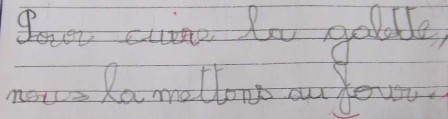 Pour cuire la galette,
nous la mettons au four.